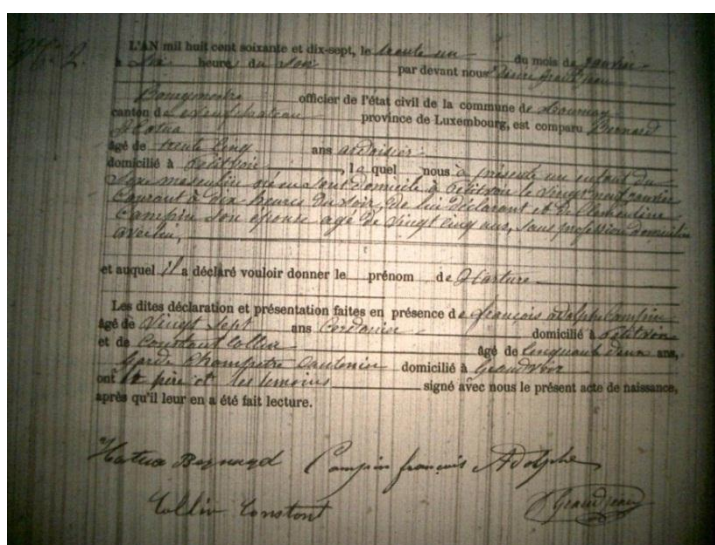 N° 2.
L'AN mil huit cent soixante et dix-sept, le trente un du mois de Janvier
à Six heures du Soir par devant nous Désiré Grandjean
Bourgmestre officier de l'état civil de la commune de
canton de Neufchateau province de Luxembourg, est comparu Bernard
Hatua
âgé de trente cinq ans ardoisier
domicilié à Petitvoir, lequel nous a présenté un enfant du
Sexe masculin né en Son domicile à Petitvoir le Vingt neuf janvier
Courant à dix heures du Soir, de lui déclarant et de Clementine
Campin Son épouse agé de Vingt cinq ans, Sans profession domicilié
avec lui,
et auquel il a déclaré vouloir donner le prénom de
Les dites déclaration et présentation faites en présence de françois adolphe Campin
âgé de Vingt Sept ans Cordonnier domicilié à Petitvoir
et de Constant Collin âgé de Cinquante deux ans,
Garde Champetre Cantonier domicilié à Grandvoir
ont le père et les temoins signé avec nous le présent acte de naissance,
après qu'il leur en a été fait lecture.
Hatua Bernard Campin françois Adolphe
Collin Constant DGrandjean